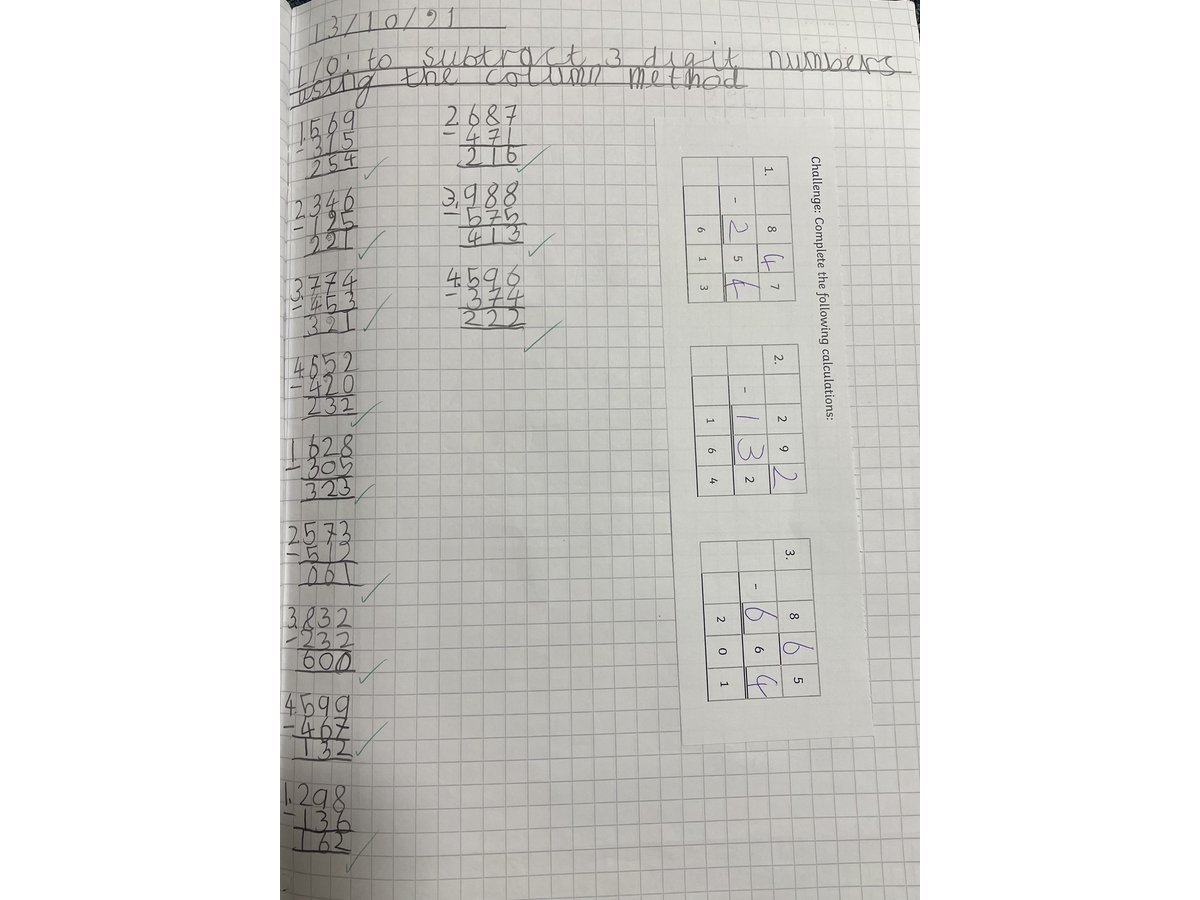 13/10/21
L/O: to subtract 3 digit numbers
using the column method
1.569
-315
254
2.346
-125
221
3.774
-453
321
4.652
-420
232
1 628
-305
323
2.573
-512
061
3.832
-232
600
4.599
-467
132
1.298
-136
162
2.687
-471
216
3.988
-575
413
4.596
-374
222
Challenge: Complete the following calculations:
1. 8 4 7
- 2 5 4
6 1 3
2. 2 9 2
- 1 3 2
1 6 4
3. 8 6 5
- 6 6 4
2 0 1